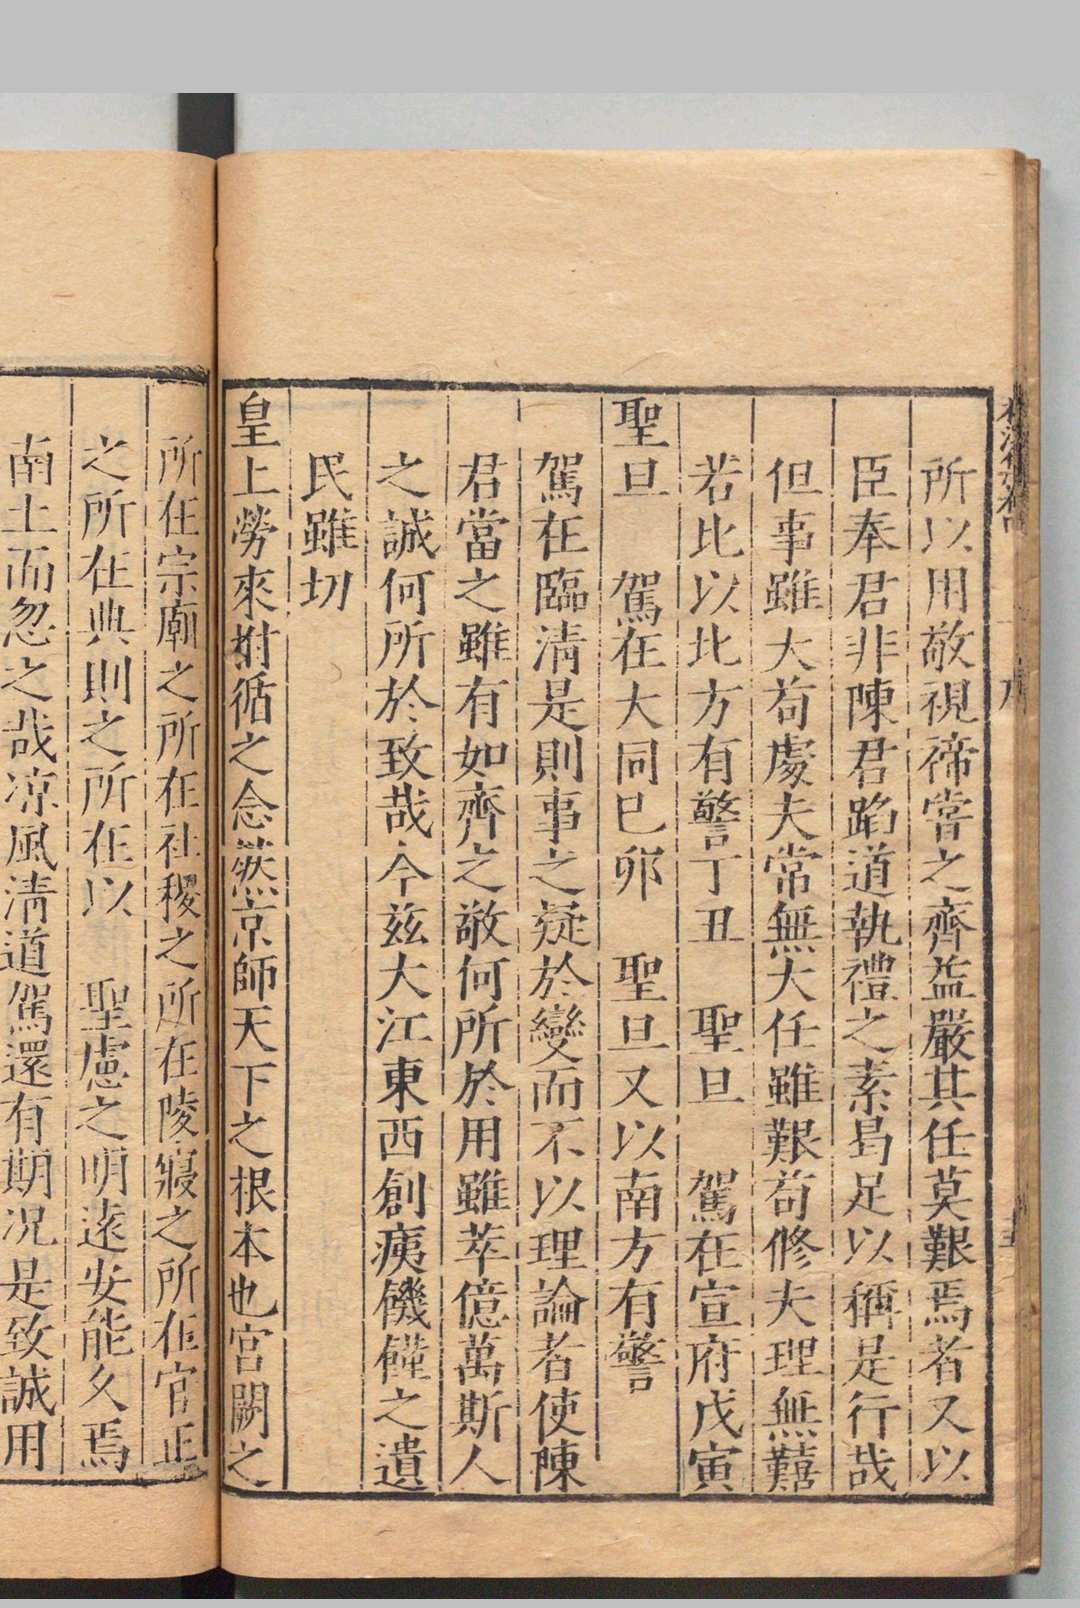 所以用敬視禘嘗之齊益嚴其任莫艱焉者又以
臣奉君非陳君蹈道執禮之素曷足以稱是行哉
但事雖大苟處夫常無大任雖艱苟修夫理無囏
若比以北方有警丁丑　聖旦　駕在宣府戊寅
聖旦　駕在大同巳卯　聖旦又以南方有警
駕在臨清是則事之疑於變而不以理論者使陳
君當之雖有如齊之敬何所於用雖萃億萬斯人
之誠何所於致哉今茲大江東西創痍饑饉之遺
民雖切
皇上勞來拊循之念然京師天下之根本也宮闕之
所在宗廟之所在社稷之所在陵寢之所在官正
之所在典則之所在以　聖慮之明遠安能久焉
南土而忽之哉凉風清道駕還有期况是致誠用